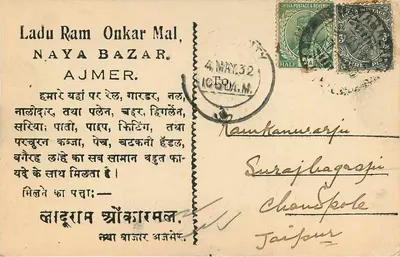 Ladu Ram Onkar Mal,
NAYA BAZAR,
AJMER.
हमारे यहाँ पर रेल, गारडर, नल,
नालीदार, तथा पलेन, चद्दर, ट्टिगलेन,
सरिया, पाती, पाइप, फिटिंग, तथा
परचुरन कब्जा, पेच, चटकनी हैंडल,
बगैरह लोहे का सब सामान बहुत फाय-
दे के साथ मिलता है।
मिलने का पता:—
लादूराम ओंकारमल,
नया बाजार अजमेर.
INDIA POSTAGE & REVENUE
HALF
4 MAY. 32
10-30 A.M.
Ramkanwarji
Surajbagasji
Chandpole
Jaipur